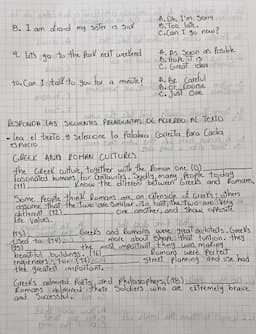 8. I am afraid my sister is sick
A. Oh, I'm sorry
B. Too late.
C. Can I go now?
9. let's go to the Park next weekend
A. As Soon as Posible
B. Hope it is
C. Great idea
10. Can I talk to you for a minute?
A. Be Careful
B. Of Course
C. Just One
RESPONDA LAS SIGUIENTES PREGUNTAS DE ACUERDO AL TEXTO
Lea el texto y Seleccione la Palabra Correcta Para Cada
espacio
GREEK AND ROMAN CULTURES
the Greek culture, together with the Roman one (0)
fascinated humans for Centuries. Sadly, many People today
(11) Know the different between Greeks and Romans,
Some People think Romans are an extension of Greeks, others
assume that the two are Similar. In fact, the two are Very
different (12) one another, and show opposite
life Values.
(13) Greeks and Romans were great architects. Greeks
(used to (14) more about Shape than function. they
(15) the most important, they was making
beautiful buildings. (16) Romans were Perfect
engineers; for (17) Street Planning and use had
the greatest important.
Greeks admired Poets, and Philosophers; (18)
Romans admired their Soldiers who are extremely brave
and Successful.